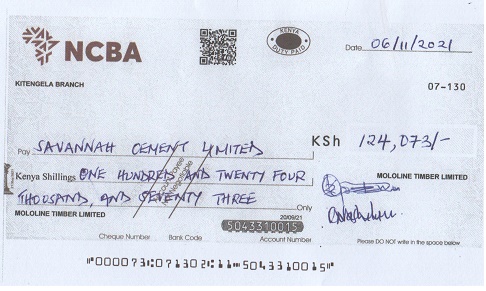 NCBA
KENYA
DUTY PAID
Date 06/11/2021
KITENGELA BRANCH
07-130
Pay SAVANNAH CEMENT LIMITED KSh 124,073/-
Kenya Shillings ONE HUNDRED AND TWENTY FOUR
THOUSAND, AND SEVENTY THREE Only
MOLOLINE TIMBER LIMITED
MOLOLINE TIMBER LIMITED
20/09/21
5043310015
Cheque Number Bank Code Account Number
Please DO NOT write in the space below
⑈000073⑆071302⑆11⑉5043310015⑈